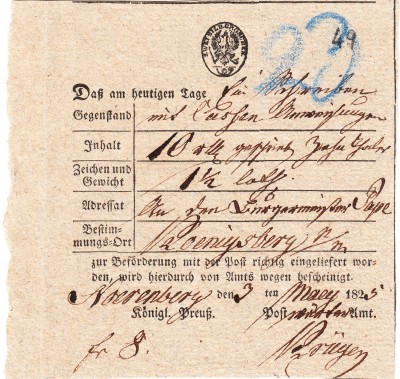 20 49
Daß am heutigen Tage Ein Schreiben
Gegenstand mit Cassen Anweisungen
Inhalt 10 rtl geschrieb Zehn Thaler
Zeichen und Gewicht 1½ loth.
Adressat An den Bürgermeister
Bestim-mungs-Ort Koenigsberg
zur Beförderung mit der Post richtig eingeliefert wor-
den, wird hierdurch von Amts wegen bescheinigt.
Noerenberg den 3 ten May 1825
Königl. Preuß. Post wärter Amt.
fr 8. Krüger